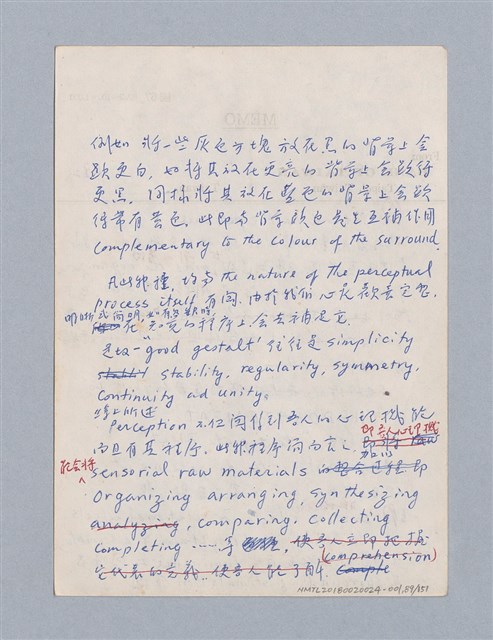 例如將一些灰色方塊放在黑的背景上會
顯更白,如將其放在更亮的背景上會顯得
更黑。同樣將其放在藍色的背景上會顯
得帶有黃色。此即為背景顏色產生互補作用
complementary to the colour of the surround.
凡此種種,均為the nature of the perceptual
process itself有關。由於我們心
在知覺的程序上,會去補足它.
是故"good gestalt'往往是simplicity
stability, regularity, symmetry,
continuity ad unity。
綜上所述
Perception不仅関係到吾人的心理機能
而且有其程序。此程序簡而言之
即吾人心理機
能會將sensorial raw materials加以
Organizing arranging, synthesizing
analyzing, comparing. collecting
completing ……等,使吾人立即把握
它代表的意義。使吾人能了解.(Comprehension)
HMTL20180020024-001,89/151